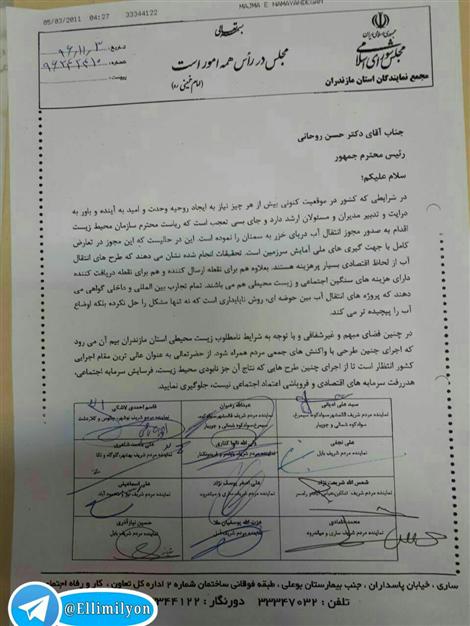 05/03/2011 04:27 33344122 MAJMA E NAMAYANDEGAN
بسمه تعالی
جمهوری اسلامی ایران
مجلس شورای اسلامی
مجمع نمایندگان استان مازندران
مجلس در رأس همه امور است
(امام خمینی ره)
تاریخ: ۹۶/۱۱/۳
شماره:
پیوست:
جناب آقای دکتر حسن روحانی
رئیس محترم جمهور
سلام علیکم؛
در شرایطی که کشور در موقعیت کنونی بیش از هر چیز نیاز به ایجاد روحیه وحدت و امید به آینده و باور به
درایت و تدبیر مدیران و مسئولان ارشد دارد و جای بسی تعجب است که ریاست محترم سازمان محیط زیست
اقدام به صدور مجوز انتقال آب دریای خزر به سمنان را نموده است. این در حالیست که این مجوز در تعارض
کامل با جهت گیری های ملی آمایش سرزمین است. تحقیقات انجام شده نشان می دهند که طرح های انتقال
آب از لحاظ اقتصادی بسیار پرهزینه هستند. بعلاوه هم برای نقطه ارسال کننده و هم برای نقطه دریافت کننده
دارای هزینه های سنگین اجتماعی و زیست محیطی هم می باشند. تمام تجارب بین المللی و داخلی گواهی می
دهند که پروژه های انتقال آب بین حوضه ای، روش ناپایداری است که نه تنها مشکل را حل نکرده بلکه اوضاع
آب را پیچیده تر می کند.
در چنین فضای مبهم و غیرشفافی و با توجه به شرایط نامطلوب زیست محیطی استان مازندران بیم آن می رود
که اجرای چنین طرحی با واکنش های جمعی مردم همراه شود. از حضرتعالی به عنوان عالی ترین مقام اجرایی
کشور انتظار است تا از اجرای چنین طرح هایی که نتایج آن جز نابودی محیط زیست، فرسایش سرمایه اجتماعی،
هدررفت سرمایه های اقتصادی و فروپاشی اعتماد اجتماعی نیست، جلوگیری نمایید.
سید علی ادیانی
نماینده مردم شریف قائمشهر،سوادکوه،سیمرغ،
سوادکوه شمالی و جویبار
عبداله رضیان
نماینده مردم شریف قائمشهر،سوادکوه،
سیمرغ،سوادکوه شمالی و جویبار
قاسم احمدی لاشکی
نماینده مردم شریف نوشهر،چالوس و کلاردشت
علی نجفی
نماینده مردم شریف بابل
ولی الله نانوا کناری
نماینده مردم شریف بابلسر و فریدونکنار
نماینده مردم شریف بهشهر،گلوگاه و نکا
شمس الله شریعت نژاد
نماینده مردم شریف تنکابن،عباس آباد و رامسر
علی اصغر یوسف نژاد
نماینده مردم شریف ساری و میاندرود
علی اسماعیلی
نماینده مردم شریف نور و محمودآباد
محمد دامادی
نماینده مردم شریف ساری و میاندرود
عزت الله یوسفیان ملا
نماینده مردم شریف آمل
حسین نیازآذری
نماینده مردم شریف بابل
ساری، خیابان پاسداران، جنب بیمارستان بوعلی، طبقه فوقانی ساختمان شماره ۲ اداره کل تعاون، کار و رفاه اجتماعی
تلفن: ۳۳۳۴۷۰۳۲ دورنگار: ۳۳۳۴۴۱۲۲
@Ellimilyon